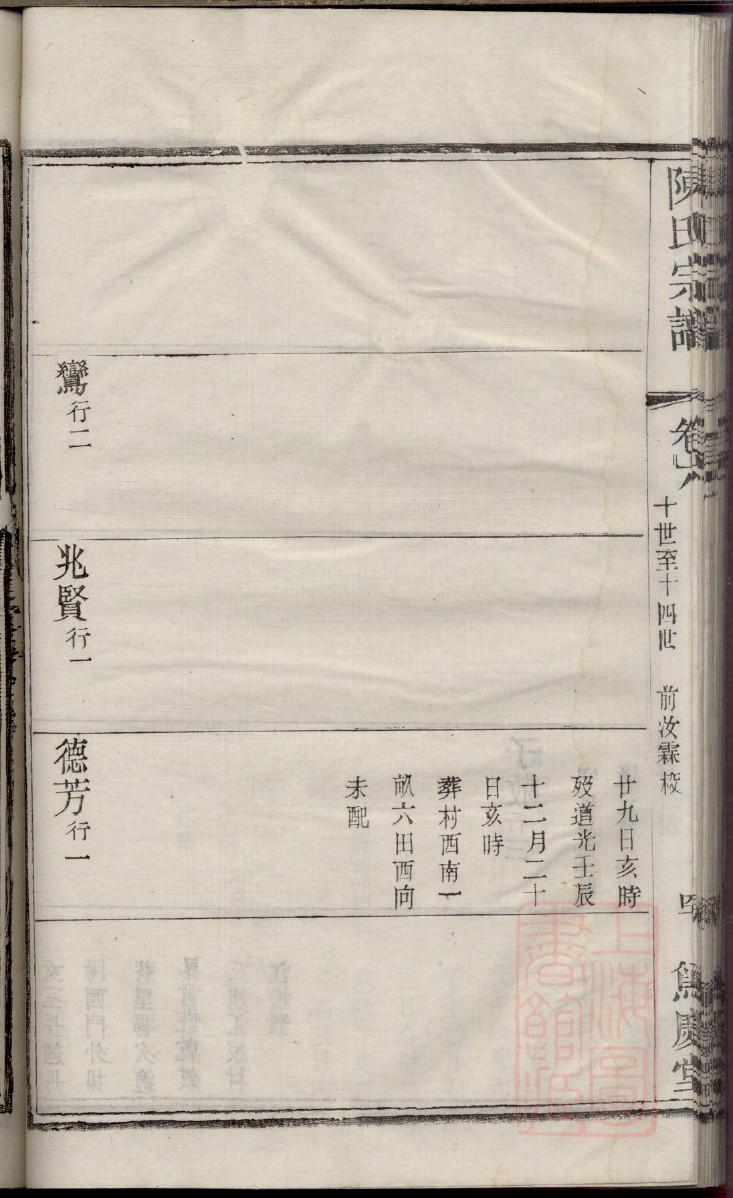 陳氏宗譜
卷六
十世至十四世 前汝霖校
四
雋慶堂
廿九日亥時
歿道光壬辰
十二月二十
日亥時
葬村西南一
畝六田酉向
未配
鸞行二
兆賢行一
德芳行一
上海圖
書館藏